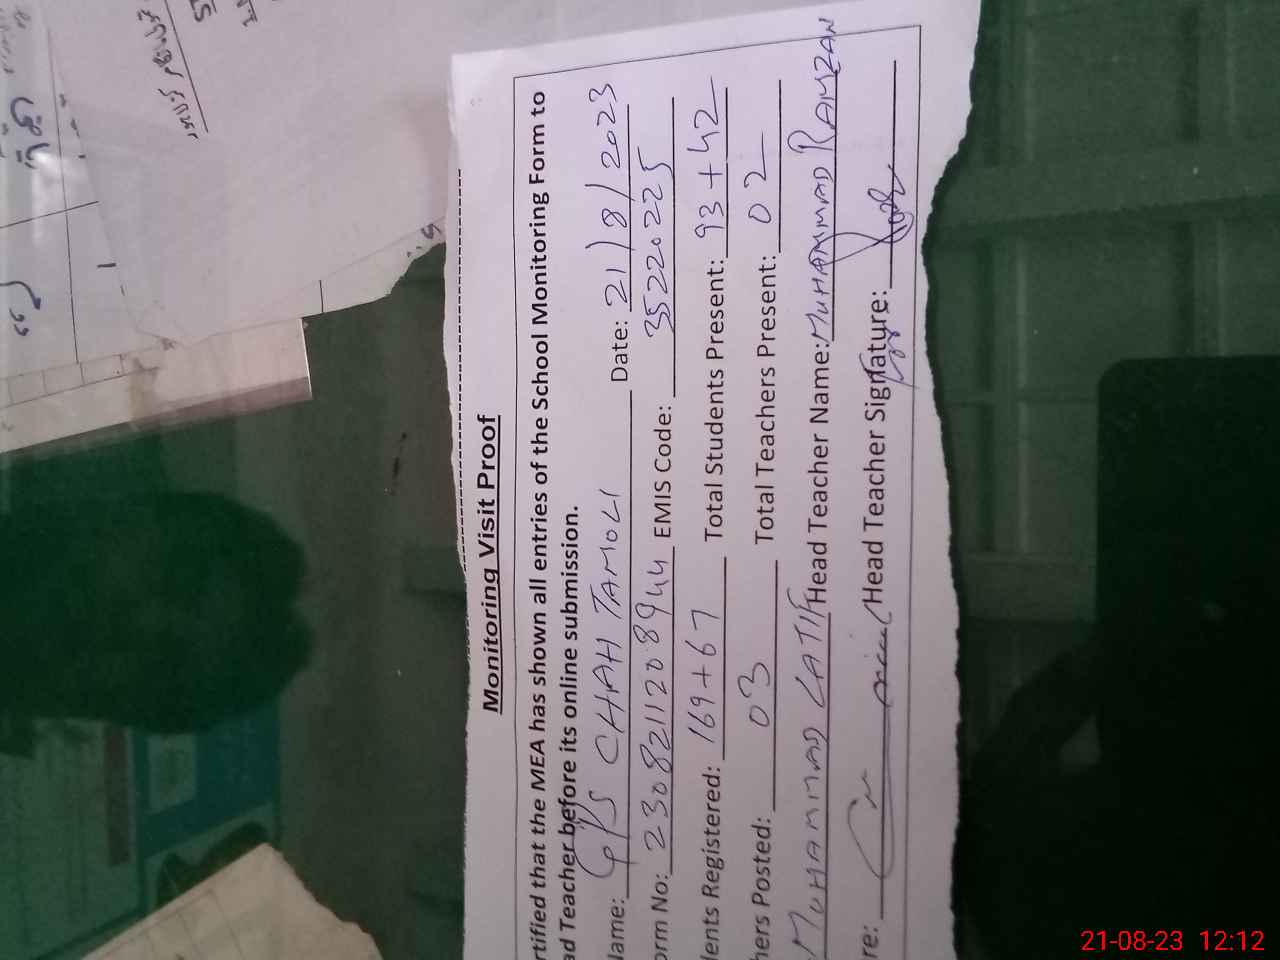 Monitoring Visit Proof
rtified that the MEA has shown all entries of the School Monitoring Form to
ad Teacher before its online submission.
Name: GPS CHAH TAMOLI Date: 21/8/2023
orm No: 2308211208944 EMIS Code: 35220225
dents Registered: 169+67 Total Students Present: 93+42
hers Posted: 03 Total Teachers Present: 02
MUHAMMAD LATIF Head Teacher Name: MUHAMMAD RAMZAN
re: Head Teacher Signature:
21-08-23 12:12